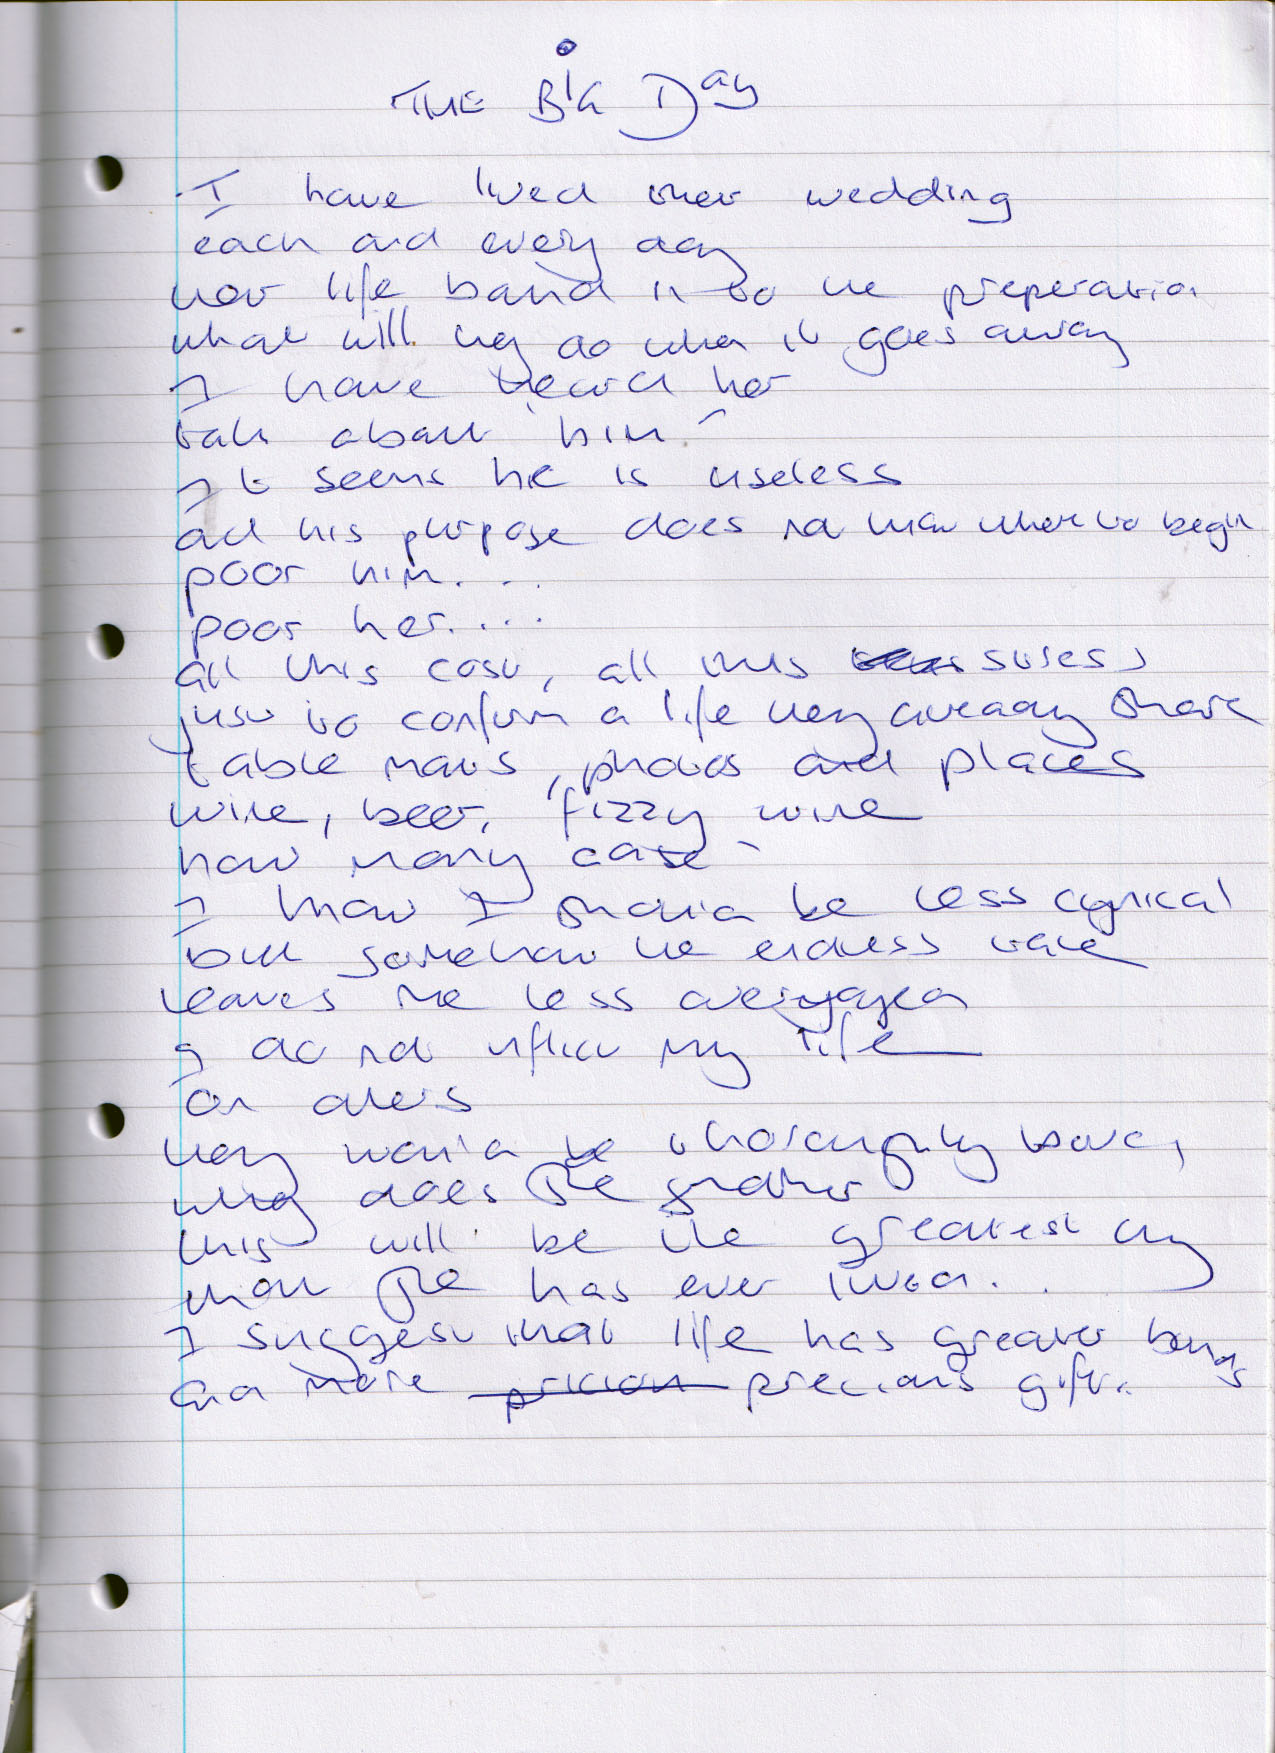 THE BIG DAY
I have lived their wedding
each and every day
her life bound into the preperation
what will they do when it goes away
I have heard her
talk about him
It seems he is useless
and his purpose does not know where to begin
poor him...
poor her....
all this cost, all this stress
just to confirm a life they already share
table mats, photos and places
wine, beer, fizzy wine
how many
I know I should be less cynical
but somehow the endless
leaves me less
I do not inflict my life
on others
they would be thoroughly bored,
why does she
this will be the greatest day
that she has ever lived..
I suggest that life has greater
and more precious gifts.